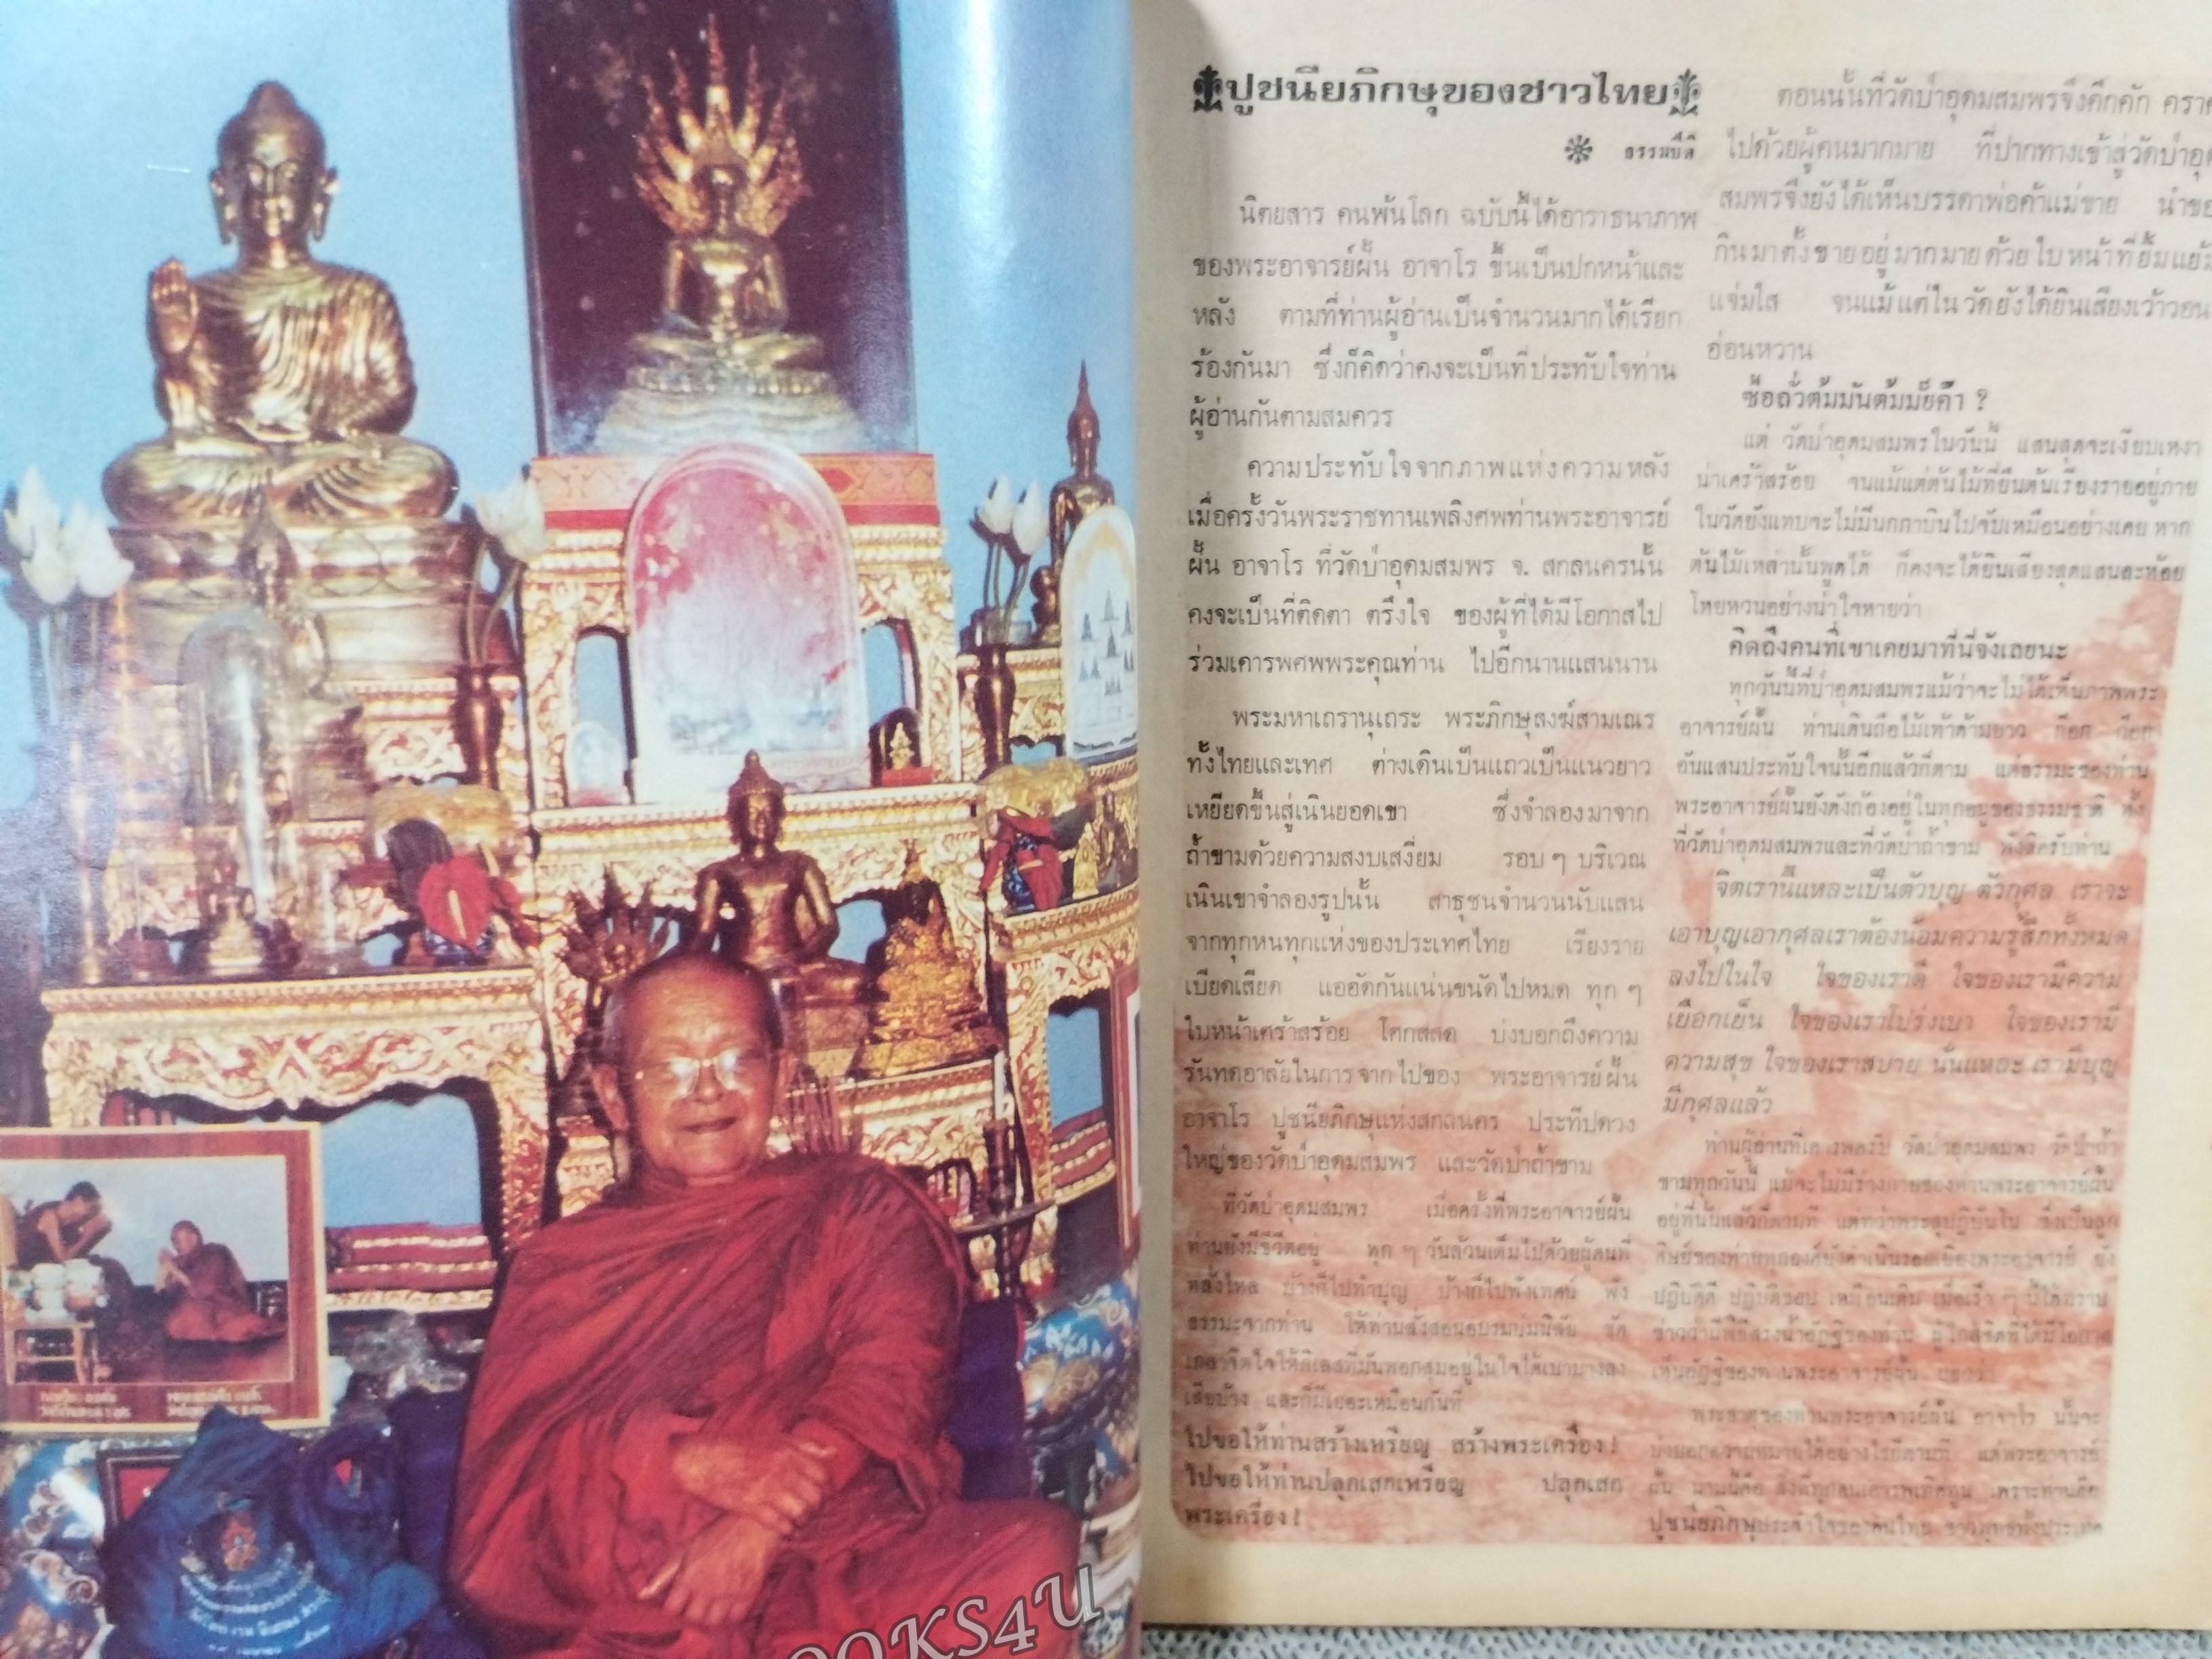 ปูชนียภิกษุของชาวไทย
ธรรมปีติ
นิตยสาร คนพ้นโลก ฉบับนี้ได้อาราธนาภาพ
ของพระอาจารย์ฝั้น อาจาโร ขึ้นเป็นปกหน้าและ
หลัง ตามที่ท่านผู้อ่านเป็นจำนวนมากได้เรียก
ร้องกันมา ซึ่งก็คิดว่าคงจะเป็นที่ประทับใจท่าน
ผู้อ่านกันตามสมควร
ความประทับใจจากภาพแห่งความหลัง
เมื่อครั้งวันพระราชทานเพลิงศพท่านพระอาจารย์
ฝั้น อาจาโร ที่วัดป่าอุดมสมพร จ. สกลนครนั้น
คงจะเป็นที่ติดตา ตรึงใจ ของผู้ที่ได้มีโอกาสไป
ร่วมเคารพศพพระคุณท่าน ไปอีกนานแสนนาน
พระมหาเถรานุเถระ พระภิกษุสงฆ์สามเณร
ทั้งไทยและเทศ ต่างเดินเป็นแถวเป็นแนวยาว
เหยียดขึ้นสู่เนินยอดเขา ซึ่งจำลองมาจาก
ถ้ำขามด้วยความสงบเสงี่ยม รอบ ๆ บริเวณ
เนินเขาจำลองรูปนั้น สาธุชนจำนวนนับแสน
จากทุกหนทุกแห่งของประเทศไทย เรียงราย
เบียดเสียด แออัดกันแน่นขนัดไปหมด ทุก ๆ
ใบหน้าเศร้าสร้อย โศกสลด บ่งบอกถึงความ
รันทดอาลัยในการจากไปของ พระอาจารย์ฝั้น
อาจาโร ปูชนียภิกษุแห่งสกลนคร ประทีปดวง
ใหญ่ของวัดป่าอุดมสมพร และวัดป่าถ้ำขาม
ที่วัดป่าอุดมสมพร เมื่อครั้งที่พระอาจารย์ฝั้น
ท่านยังมีชีวิตอยู่ ทุก ๆ วันล้วนเต็มไปด้วยผู้คนที่
หลั่งไหล บ้างก็ไปทำบุญ บ้างก็ไปฟังเทศน์ ฟัง
ธรรมะจากท่าน ให้ท่านสั่งสอนอบรมบ่มนิสัย ขัด
เกลาจิตใจให้กิเลสที่มันพอกสุมอยู่ในใจได้เบาบางลง
เสียบ้าง และที่มีเยอะเหมือนกันที่
ไปขอให้ท่านสร้างเหรียญ สร้างพระเครื่อง!
ไปขอให้ท่านปลุกเสกเหรียญ ปลุกเสก
พระเครื่อง!
ตอนนั้นที่วัดป่าอุดมสมพรจึงคึกคัก
ไปด้วยผู้คนมากมาย ที่ปากทางเข้าสู่วัดป่า
สมพรจึงยังได้เห็นบรรดาพ่อค้าแม่ขาย
กินมาตั้งขายอยู่มากมายด้วยใบหน้าที่ยิ้มแย้ม
แจ่มใส จนแม้แต่ในวัดยังได้ยินเสียงเว้าวอน
อ่อนหวาน
ซื้อถั่วต้มมันต้มมั้ยค๊า ?
แต่ วัดป่าอุดมสมพรในวันนี้ แสนสุดจะเงียบเหงา
น่าเศร้าสร้อย จนแม้แต่ต้นไม้ที่ยืนต้นเรียงรายอยู่ภาย
ในวัดยังแทบจะไม่มีนกกาบินไปจับเหมือนอย่างเคย หาก
ต้นไม้เหล่านั้นพูดได้ ก็คงจะได้ยินเสียงสุดแสนละห้อย
โหยหวนอย่างน่าใจหายว่า
คิดถึงคนที่เขาเคยมาที่นี่จังเลยนะ
ทุกวันนี้ที่ป่าอุดมสมพรแม้ว่าจะไม่ได้เห็นภาพพระ
อาจารย์ฝั้น ท่านเดินถือไม้เท้าด้ามยาว ก๊อก ก๊อก
อันแสนประทับใจนั้นอีกแล้วก็ตาม แต่ธรรมะของท่าน
พระอาจารย์ฝั้นยังดังก้องอยู่ในทุกอณูของธรรมชาติ ทั้ง
ที่วัดป่าอุดมสมพรและที่วัดป่าถ้ำขาม ฟังสิครับท่าน
จิตเรานี้แหละเป็นตัวบุญ ตัวกุศล เราจะ
เอาบุญเอากุศลเราต้องน้อมความรู้สึกทั้งหมด
ลงไปในใจ ใจของเราดี ใจของเรามีความ
เยือกเย็น ใจของเราโปร่งเบา ใจของเรามี
ความสุข ใจของเราสบาย นั่นแหละ เรามีบุญ
มีกุศลแล้ว
ท่านผู้อ่านที่เคารพครับ วัดป่าอุดมสมพร วัดป่าถ้ำ
ขามทุกวันนี้ แม้จะไม่มีร่างกายของท่านพระอาจารย์ฝั้น
อยู่ที่นั่นแล้วก็ตามที แต่ทว่าพระสุปฏิปันโน ซึ่งเป็นลูก
ศิษย์ของท่านทุกองค์ยังดำเนินรอยเยี่ยงพระอาจารย์ ยัง
ปฏิบัติดี ปฏิบัติชอบ เหมือนเดิม เมื่อเร็ว ๆ นี้ได้ทราบ
ข่าวว่ามีพิธีสรงน้ำอัฏฐิของท่าน ผู้ใกล้ชิดที่ได้มีโอกาส
เห็นอัฏฐิของท่านพระอาจารย์ฝั้น บอกว่า
พระธาตุของท่านพระอาจารย์ฝั้น อาจาโร นั้นจะ
บ่งบอกความหมายได้อย่างไรก็ตามที แต่พระอาจารย์
ฝั้น นามนี้คือ สิ่งที่ทุกคนเคารพเทิดทูน เพราะท่านคือ
ปูชนียภิกษุประจำใจของคนไทย
OOKS4U